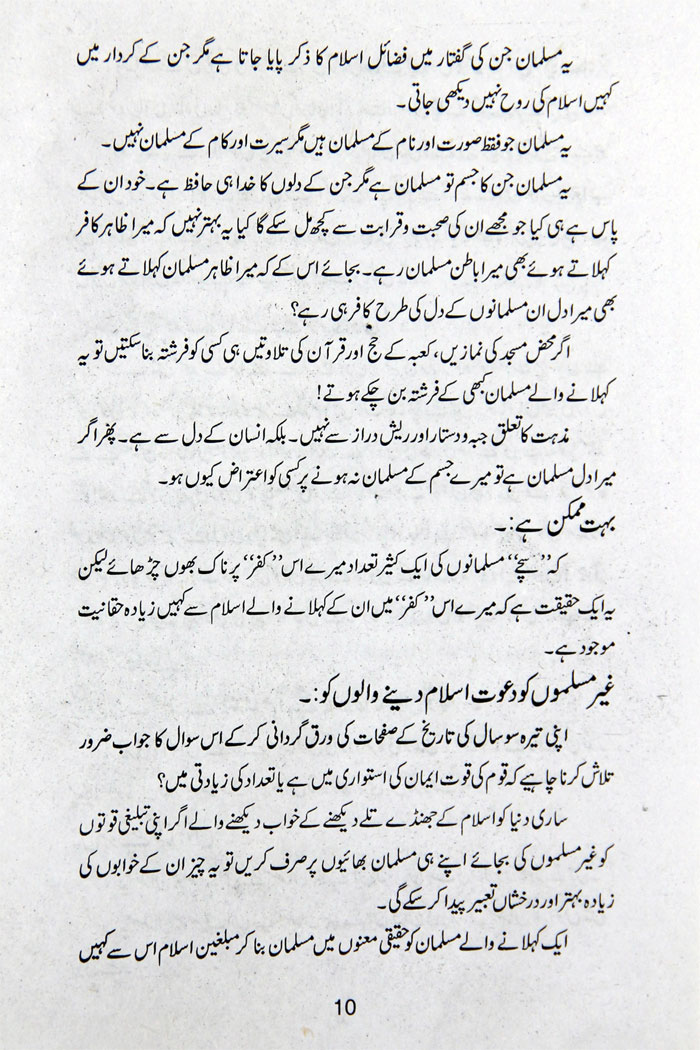 یہ مسلمان جن کی گفتار میں فضائل اسلام کا ذکر پایا جاتا ہے مگر جن کے کردار میں
کہیں اسلام کی روح نہیں دیکھی جاتی۔
یہ مسلمان جو فقط صورت اور نام کے مسلمان ہیں مگر سیرت اور کام کے مسلمان نہیں۔
یہ مسلمان جن کا جسم تو مسلمان ہے مگر جن کے دلوں کا خدا ہی حافظ ہے۔ خود ان کے
پاس ہے ہی کیا جو مجھے ان کی صحبت و قرابت سے کچھ مل سکے گا کیا یہ بہتر نہیں کہ میرا ظاہر کافر
کہلاتے ہوئے بھی میرا باطن مسلمان رہے۔ بجائے اس کے کہ میرا ظاہر مسلمان کہلاتے ہوئے
بھی میرا دل ان مسلمانوں کے دل کی طرح کافر ہی رہے؟
اگر محض مسجد کی نمازیں، کعبہ کے حج اور قرآن کی تلاوتیں ہی کسی کو فرشتہ بنا سکتیں تو یہ
کہلانے والے مسلمان کبھی کے فرشتہ بن چکے ہوتے!
مذہب کا تعلق جبہ و دستار اور ریش دراز سے نہیں۔ بلکہ انسان کے دل سے ہے۔ پھر اگر
میرا دل مسلمان ہے تو میرے جسم کے مسلمان نہ ہونے پر کسی کو اعتراض کیوں ہو۔
بہت ممکن ہے:۔
کہ ”سچے“ مسلمانوں کی ایک کثیر تعداد میرے اس ”کفر“ پر ناک بھوں چڑھائے لیکن
یہ ایک حقیقت ہے کہ میرے اس ”کفر“ میں ان کے کہلانے والے اسلام سے کہیں زیادہ حقانیت
موجود ہے۔
غیر مسلموں کو دعوت اسلام دینے والوں کو:۔
اپنی تیرہ سو سال کی تاریخ کے صفحات کی ورق گردانی کر کے اس سوال کا جواب ضرور
تلاش کرنا چاہیے کہ قوم کی قوت ایمان کی استواری میں ہے یا تعداد کی زیادتی میں؟
ساری دنیا کو اسلام کے جھنڈے تلے دیکھنے کے خواب دیکھنے والے اگر اپنی تبلیغی قوتوں
کو غیر مسلموں کی بجائے اپنے ہی مسلمان بھائیوں پر صرف کریں تو یہ چیز ان کے خوابوں کی
زیادہ بہتر اور درخشاں تعبیر پیدا کر سکے گی۔
ایک کہلانے والے مسلمان کو حقیقی معنوں میں مسلمان بنا کر مبلغین اسلام اس سے کہیں
10